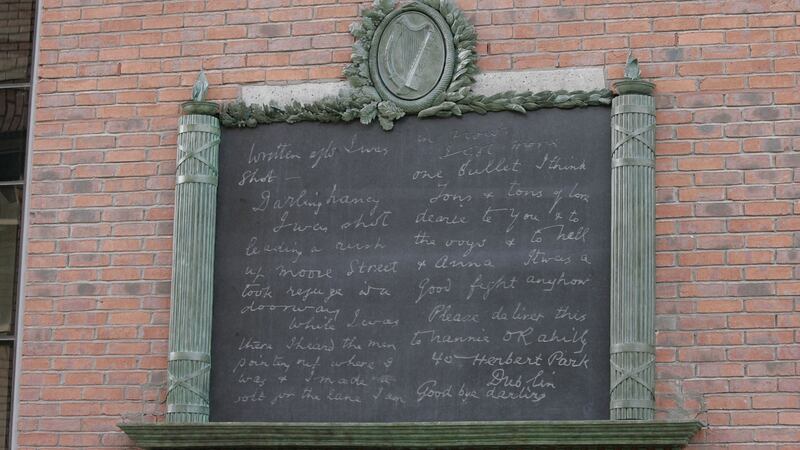 Written after I was
shot —
Darling Nancy
I was shot
leading a rush
up Moore Street
took refuge in a
doorway
While I was
there I heard the men
pointing out where I
was & I made a
bolt for the lane I am
in now
I got more
one Bullet I think
Tons & tons of love
dearie to you & to
the boys & to Nell
& Anna It was a
Good fight anyhow
Please deliver this
to Nannie O'Rahilly
40 Herbert Park
Dublin
Good bye darling